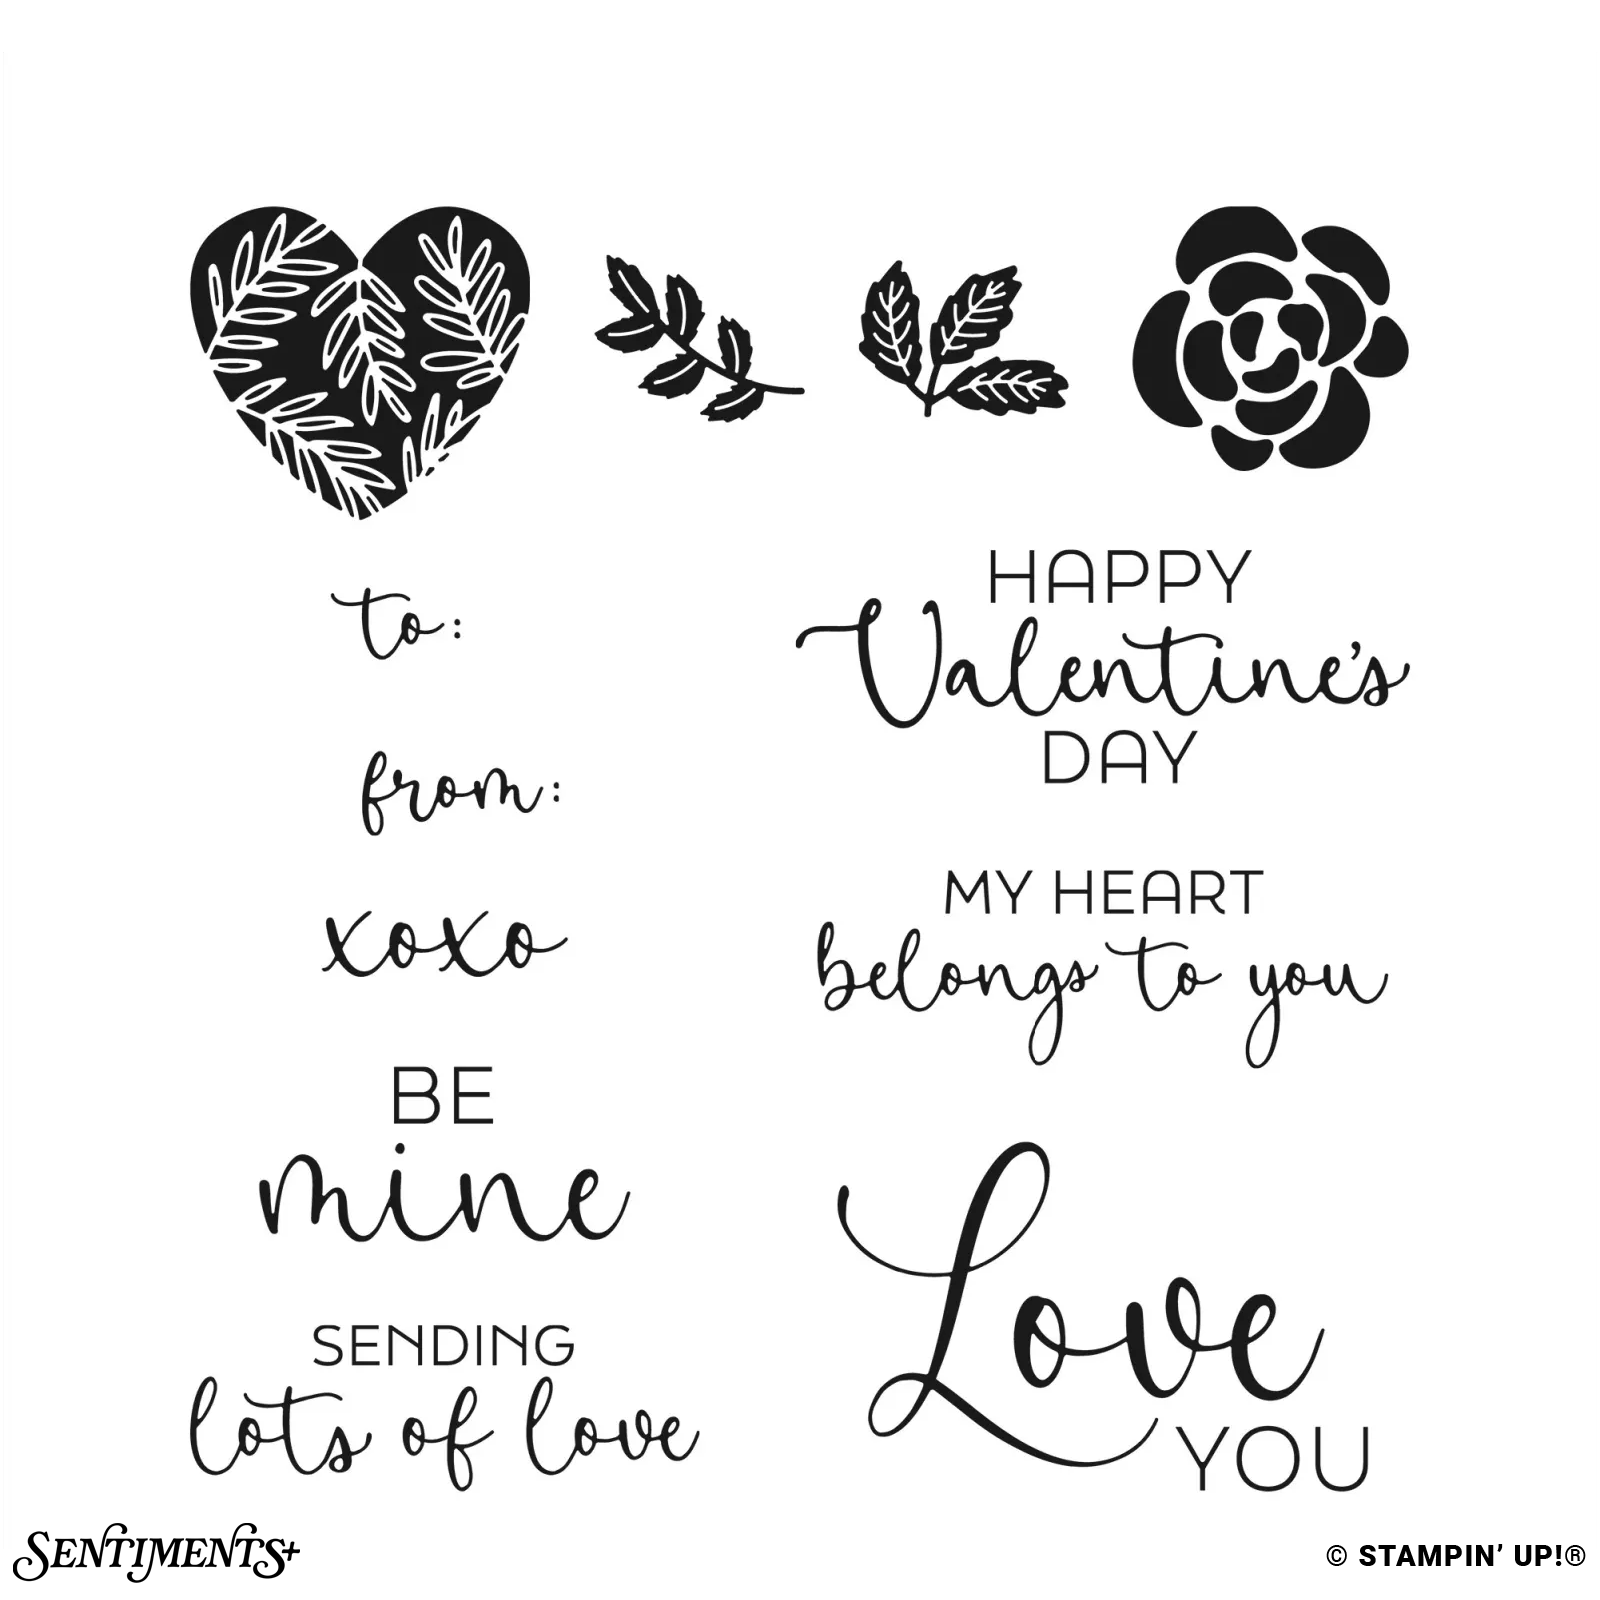 to:
from:
xoxo
BE
mine
SENDING
lots of love
HAPPY
Valentine's
DAY
MY HEART
belongs to you
Love
YOU
SENTIMENTS+
© STAMPIN' UP!®